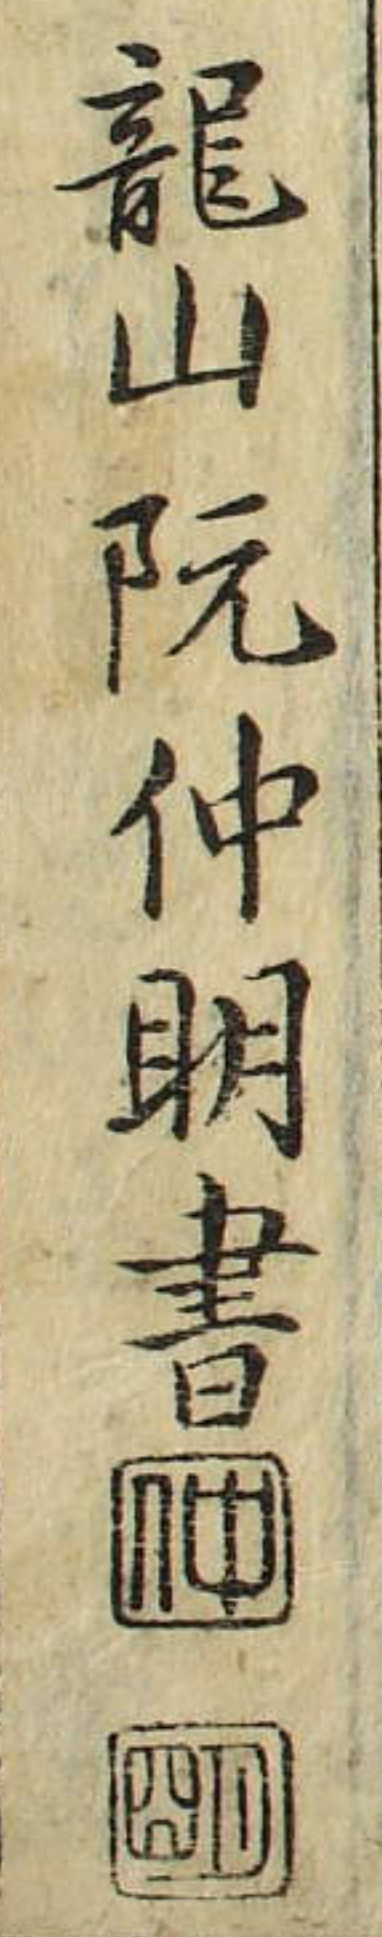 龍山阮仲明書
仲
明